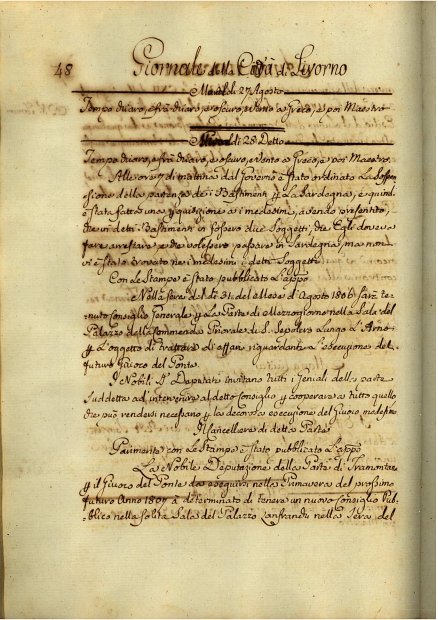 48 Giornale della Città di Livorno
Martedì 27 Agosto
Tempo chiaro, e frà chiaro, e oscuro, e vento a Greco, e poi Maestro
Mercoldì 28 Detto
Tempo chiaro, e frà chiaro, e oscuro, e vento a Greco, e poi Maestro.
Alle ore 7 di mattina dal Governo è stato ordinato La Sospen-
sione della partenza dei Bastimenti p La Sardegna, e quindi
è stata fatta una perquisizione a i medesimi, avendo presentito,
che in detti Bastimenti vi fossero due Soggetti, che Egli doveva
fare arrestare e che volessero passare in Sardegna, ma non
vi è stato trovato nei medesimi i detti Soggetti
Con Le Stampe è stato pubblicato L'appo
Nella sera del dì 31. del Mese d'Agosto 1806 sarà te-
nuto Consiglio Generale p La Parte di Mezzogiorno nella Sala del
Palazzo della Commenda Priorale di S. Sepolcro Lungo L'Arno
p L'oggetto di trattare di affari riguardanti L'esecuzione del
futuro Giuoco del Ponte.
I Nobili SS. Deputati invitano tutti i Geniali della parte
Suddetta ad intervenire al detto Consiglio, e cooperare a tutto quello
che può rendersi necessario p la decorosa esecuzione del Giuoco medesimo
Il Cancelliere di detta Parte
Parimente con Le Stampe è stato pubblicato L'appo
La Nobile Deputazione della Parte di Tramontana
p il Giuoco del Ponte da eseguirsi nella Primavera del prossimo
futuro Anno 1807 à determinato di tenere un nuovo Consiglio Pub-
blico nella solita Sala del Palazzo Lanfranchi nella Sera del